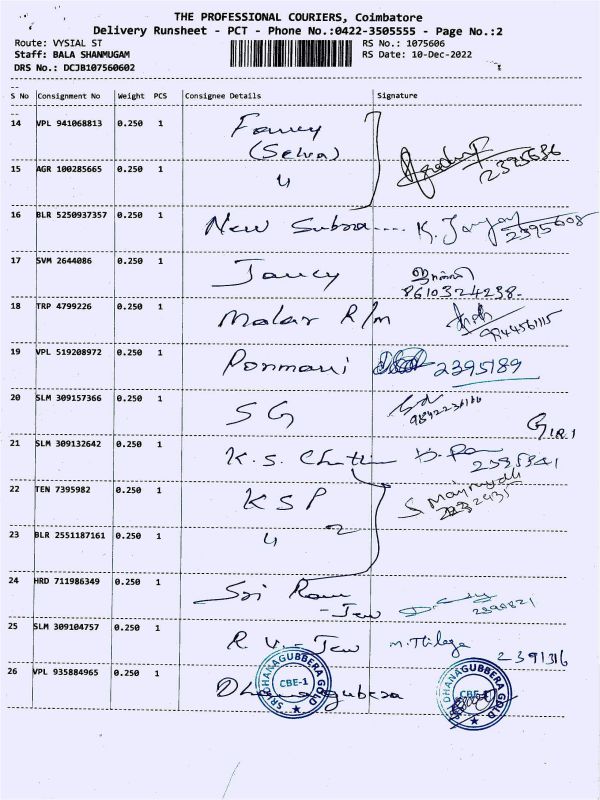 THE PROFESSIONAL COURIERS, Coimbatore
Delivery Runsheet - PCT - Phone No.:0422-3505555 - Page No.:2
Route: VYSIAL ST RS No.: 1075606
Staff: BALA SHANMUGAM RS Date: 10-Dec-2022
DRS No.: DCJB107560602
S No Consignment No Weight PCS Consignee Details Signature
14 VPL 941068813 0.250 1 Fancy
(Selva)
15 AGR 100285665 0.250 1 4 2395686
16 BLR 5250937357 0.250 1 New Subra.... K. 2395608
17 SVM 2644086 0.250 1 Jancy
8610324238-
18 TRP 4799226 0.250 1 Malar R/m
9944561115
19 VPL 519208972 0.250 1 Ponmani 2395189
20 SLM 309157366 0.250 1 SG
GIRI
21 SLM 309132642 0.250 1 K. S.
22 TEN 7395982 0.250 1 KSP S
23 BLR 2551187161 0.250 1 4 2
24 HRD 711986349 0.250 1 Sri Ram
- Jew 2390821
25 SLM 309104757 0.250 1 R V - Jew M. Thilaga
2391316
26 VPL 935884965 0.250 1 Dhanagubera
SRI DHANAGUBBERA GOLD
CBE-1
SRI DHANAGUBBERA GOLD
CBE-1